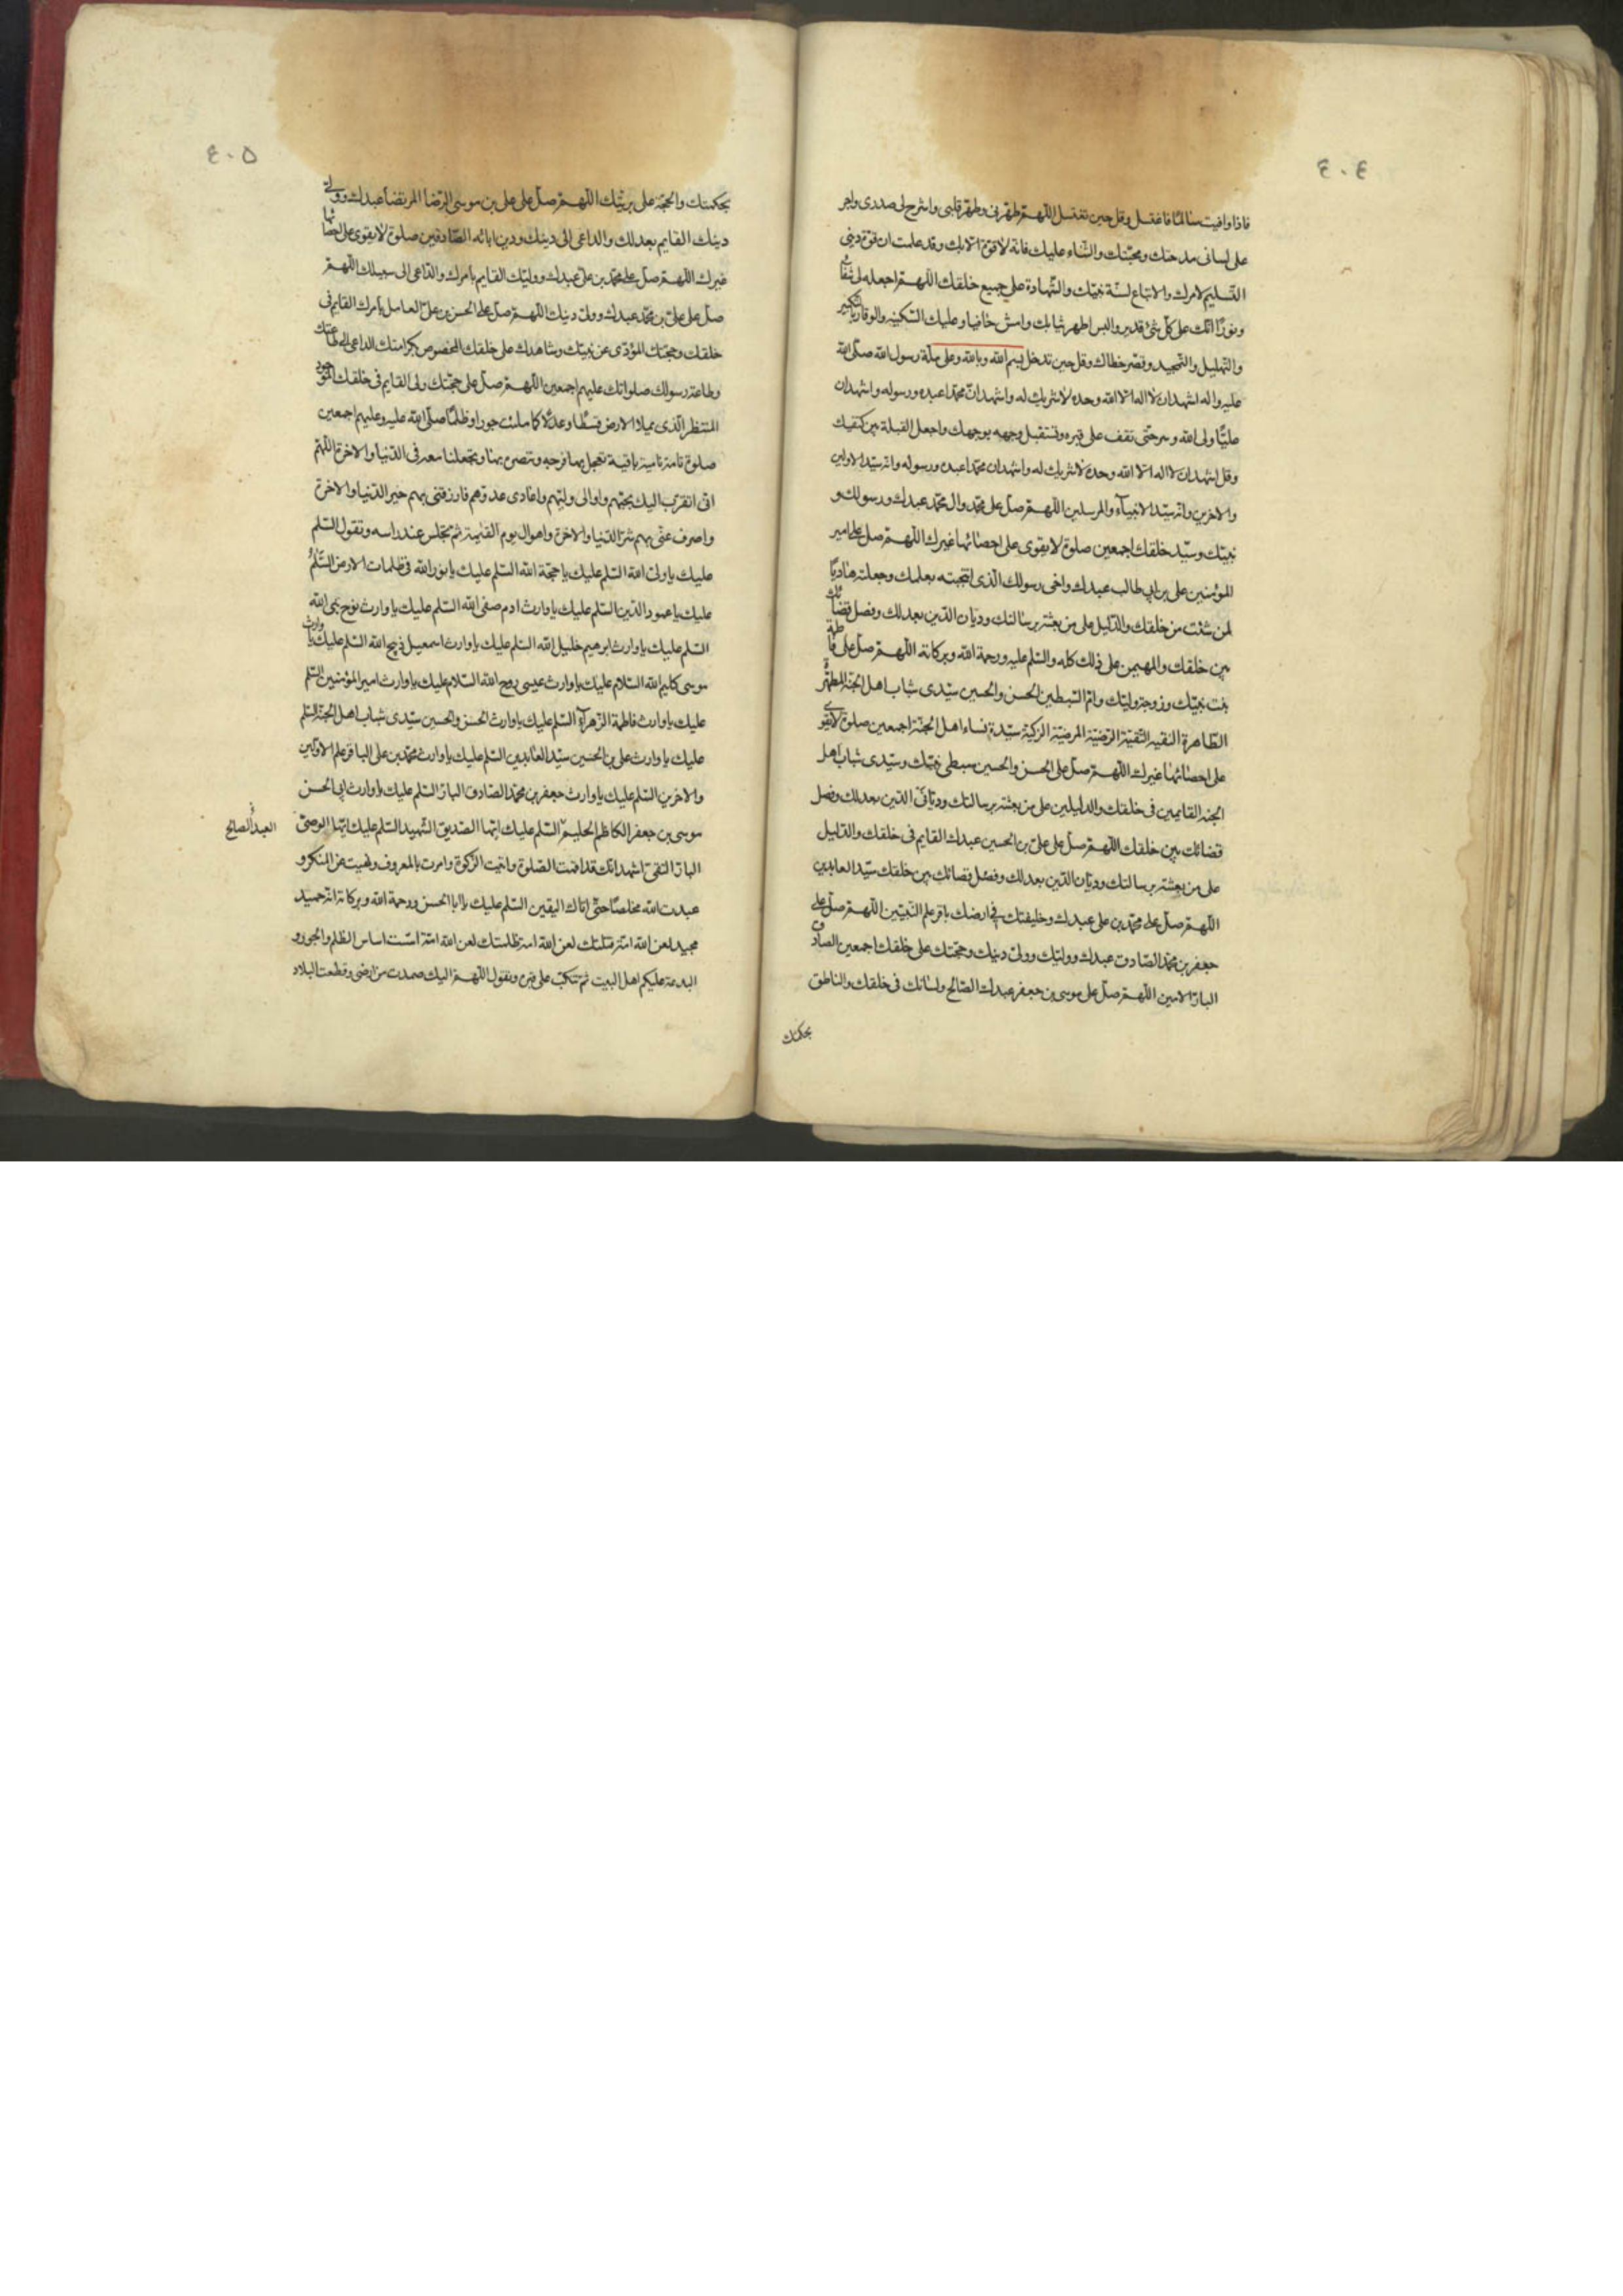 ٤٠٤
فاذا وافيت سالمًا فاغتسل وقل حين تغتسل اللّهمّ طهّرنى وطهّر قلبى واشرح لى صدرى واجر
على لسانى مدحتك ومحبّتك والثّناء عليك فانّه لا قوّة الّا بك وقد علمت ان قوّة دينى
التّسليم لامرك والاتباع لسنّة نبيّك والشّهادة على جميع خلقك اللّهمّ اجعله لى شفآءً
ونورًا انّك على كلّ شئ قدير والبس اطهر ثيابك وامش حافيا وعليك السّكينه والوقار بالتكبير
والتّهليل والتّمجيد وقصّر خطاك وقل حين تدخل بسم الله وبالله وعلى ملّة رسول الله صلّى الله
عليه واله اشهد ان لا اله الّا الله وحده لا شريك له واشهد انّ محمّدا عبده ورسوله واشهد ان
عليًّا ولى الله وسرحتى تقف على قبره وتستقبل وجهه بوجهك واجعل القبلة بين كتفيك
وقل اشهد ان لا اله الّا الله وحده لا شريك له واشهد ان محمّدا عبده ورسوله وانّه سيّد الاولين
والاخرين وانّه سيّد الانبيآء والمرسلين اللّهمّ صلّ على محمّد وال محمّد عبدك ورسولك و
نبيّك وسيّد خلقك اجمعين صلوة لا يقوى على احصائها غيرك اللّهمّ صلّ على امير
المؤمنين على بن ابي طالب عبدك واخى رسولك الّذى انتجبته بعلمك وجعلته هاديًا
لمن شئت من خلقك والدّليل على من بعثته برسالتك وديّان الدّين بعدلك وفصل قضائك
بين خلقك والمهيمن على ذلك كله والسّلم عليه ورحمة الله وبركاته اللّهمّ صلّ على فاطمة
بنت نبيّك وزوجة وليّك وامّ السّبطين الحسن والحسين سيّدى شباب اهل الجنّة المطهّرة
الطّاهرة النقيه التّقيّة الرّضيّة المرضيّة الزكيّة سيّدة نساء اهل الجنّة اجمعين صلوة لا يقوى
على احصائها غيرك اللّهمّ صلّ على الحسن والحسين سبطى نبيّك وسيّدى شباب اهل
الجنه القايمين فى خلقك والدليلين على من بعثته برسالتك وديّانى الدّين بعدلك وفصل
قضائك بين خلقك اللّهمّ صلّ على علىّ بن الحسين عبدك القايم فى خلقك والدّليل
على من بعثته برسالتك وديّان الدّين بعدلك وفصل قضائك بين خلقك سيّد العابدين
اللّهمّ صلّ على محمّد بن على عبدك وخليفتك فى ارضك باقر علم النّبيّين اللّهمّ صلّ على
جعفر بن محمّد الصّادق عبدك ووليّك وولىّ دينك وحجّتك على خلقك اجمعين الصّادق
البارّ الامين اللّهمّ صلّ على موسى بن جعفر عبدك الصّالح ولسانك فى خلقك والناطق
بحكمتك
٤٠٥
بحكمتك والحجّة على بريّتك اللّهمّ صلّ على على بن موسى الرّضا المرتضا عبدك وولىّ
دينك القايم بعدلك والداعى الى دينك ودين ابائه الصّادقين صلوة لا يقوى على احصائها
غيرك اللّهمّ صلّ على محمّد بن علىّ عبدك ووليّك القايم بامرك والدّاعى الى سبيلك اللّهمّ
صلّ على علىّ بن محمّد عبدك وولىّ دينك اللّهمّ صلّ على الحسن بن علىّ العامل بامرك القايم فى
خلقك وحجّتك المؤدّى عن نبيّك وشاهدك على خلقك المخصوص بكرامتك الداعى الى طاعتك
وطاعة رسولك صلواتك عليهم اجمعين اللّهمّ صلّ على حجّتك ولى القايم فى خلقك الموجود
المنتظر الّذى يملا الارض قسطًا وعدلًا كما ملئت جورا وظلمًا صلّى الله عليه وعليهم اجمعين
صلوة تامّة نامية باقية تعجّل بها فرجه وتنصره بها وتجعلنا معه فى الدّنيا والاخرة اللّهمّ
انى اتقرّب اليك بحبّهم واوالى وليّهم واعادى عدوّهم فارزقنى بهم خير الدّنيا والاخرة
واصرف عنّى بهم شرّ الدّنيا والاخرة واهوال يوم القيمة ثمّ تجلس عند راسه وتقول السّلم
عليك يا ولىّ الله السّلم عليك يا حجّة الله السّلم عليك يا نور الله فى ظلمات الارض السّلم
عليك يا عمود الدّين السّلم عليك يا وارث ادم صفى الله السّلم عليك يا وارث نوح نجى الله
السّلم عليك يا وارث ابرهيم خليل الله السّلم عليك يا وارث اسمعيل ذبيح الله السّلم عليك يا وارث
موسى كليم الله السّلام عليك يا وارث عيسى روح الله السّلام عليك يا وارث امير المؤمنين السّلم
عليك يا وارث فاطمة الزّهرآء السّلم عليك يا وارث الحسن والحسين سيّدى شباب اهل الجنّة السّلم
عليك يا وارث على بن الحسين سيّد العابدين السّلم عليك يا وارث محمّد بن على الباقر علم الاوّلين
والاخرين السّلم عليك يا وارث جعفر بن محمّد الصّادق البارّ السّلم عليك يا وارث ابى الحسن
موسى بن جعفر الكاظم الحليم السّلم عليك ايّها الصّديق الشّهيد السّلم عليك ايّها الوصىّ
العبد الصالح
البارّ التقىّ اشهد انّك قد اقمت الصّلوة واتيت الزّكوة وامرت بالمعروف ونهيت عن المنكر و
عبدت الله مخلصًا حتّى اتاك اليقين السّلم عليك يا ابا الحسن ورحمة الله وبركاته انّه حميد
مجيد لعن الله امّة قتلتك لعن الله امة ظلمتك لعن الله امّة اسّست اساس الظّلم والجور و
البدعة عليكم اهل البيت ثمّ تنكبّ على قبره وتقول اللّهمّ اليك صمدت من ارضى وقطعت البلاد